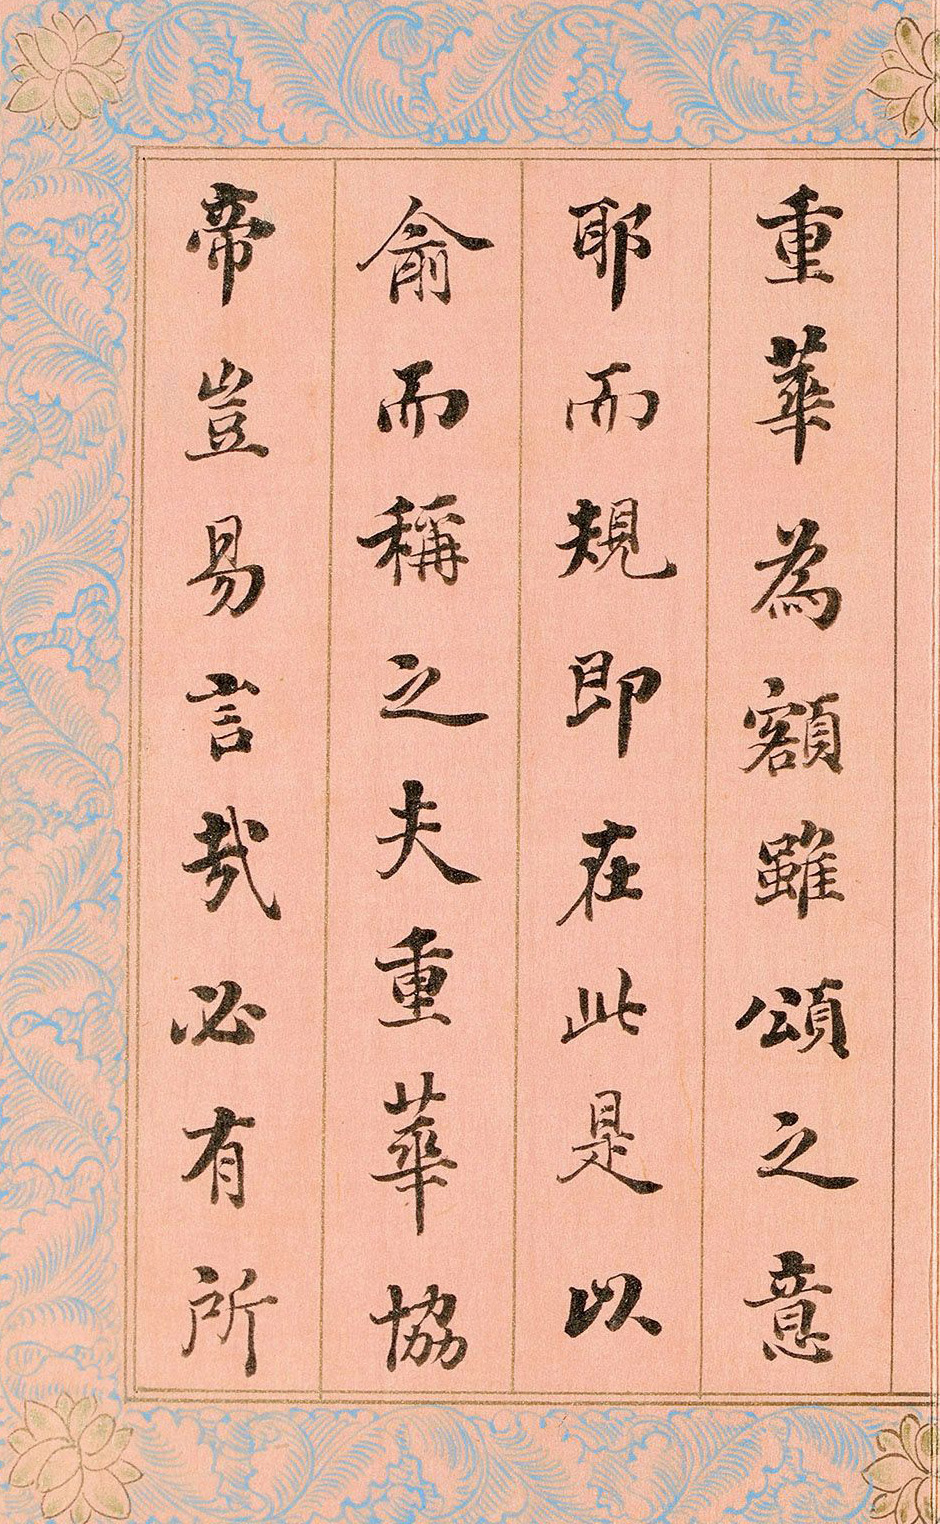 重華為額雖頌之意
耶而規即在此是以
俞而稱之夫重華協
帝豈易言哉必有所